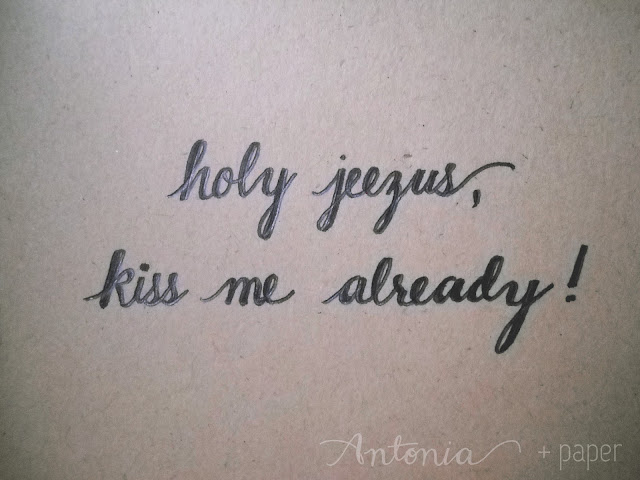 holy jeezus,
kiss me already!
Antonia + paper